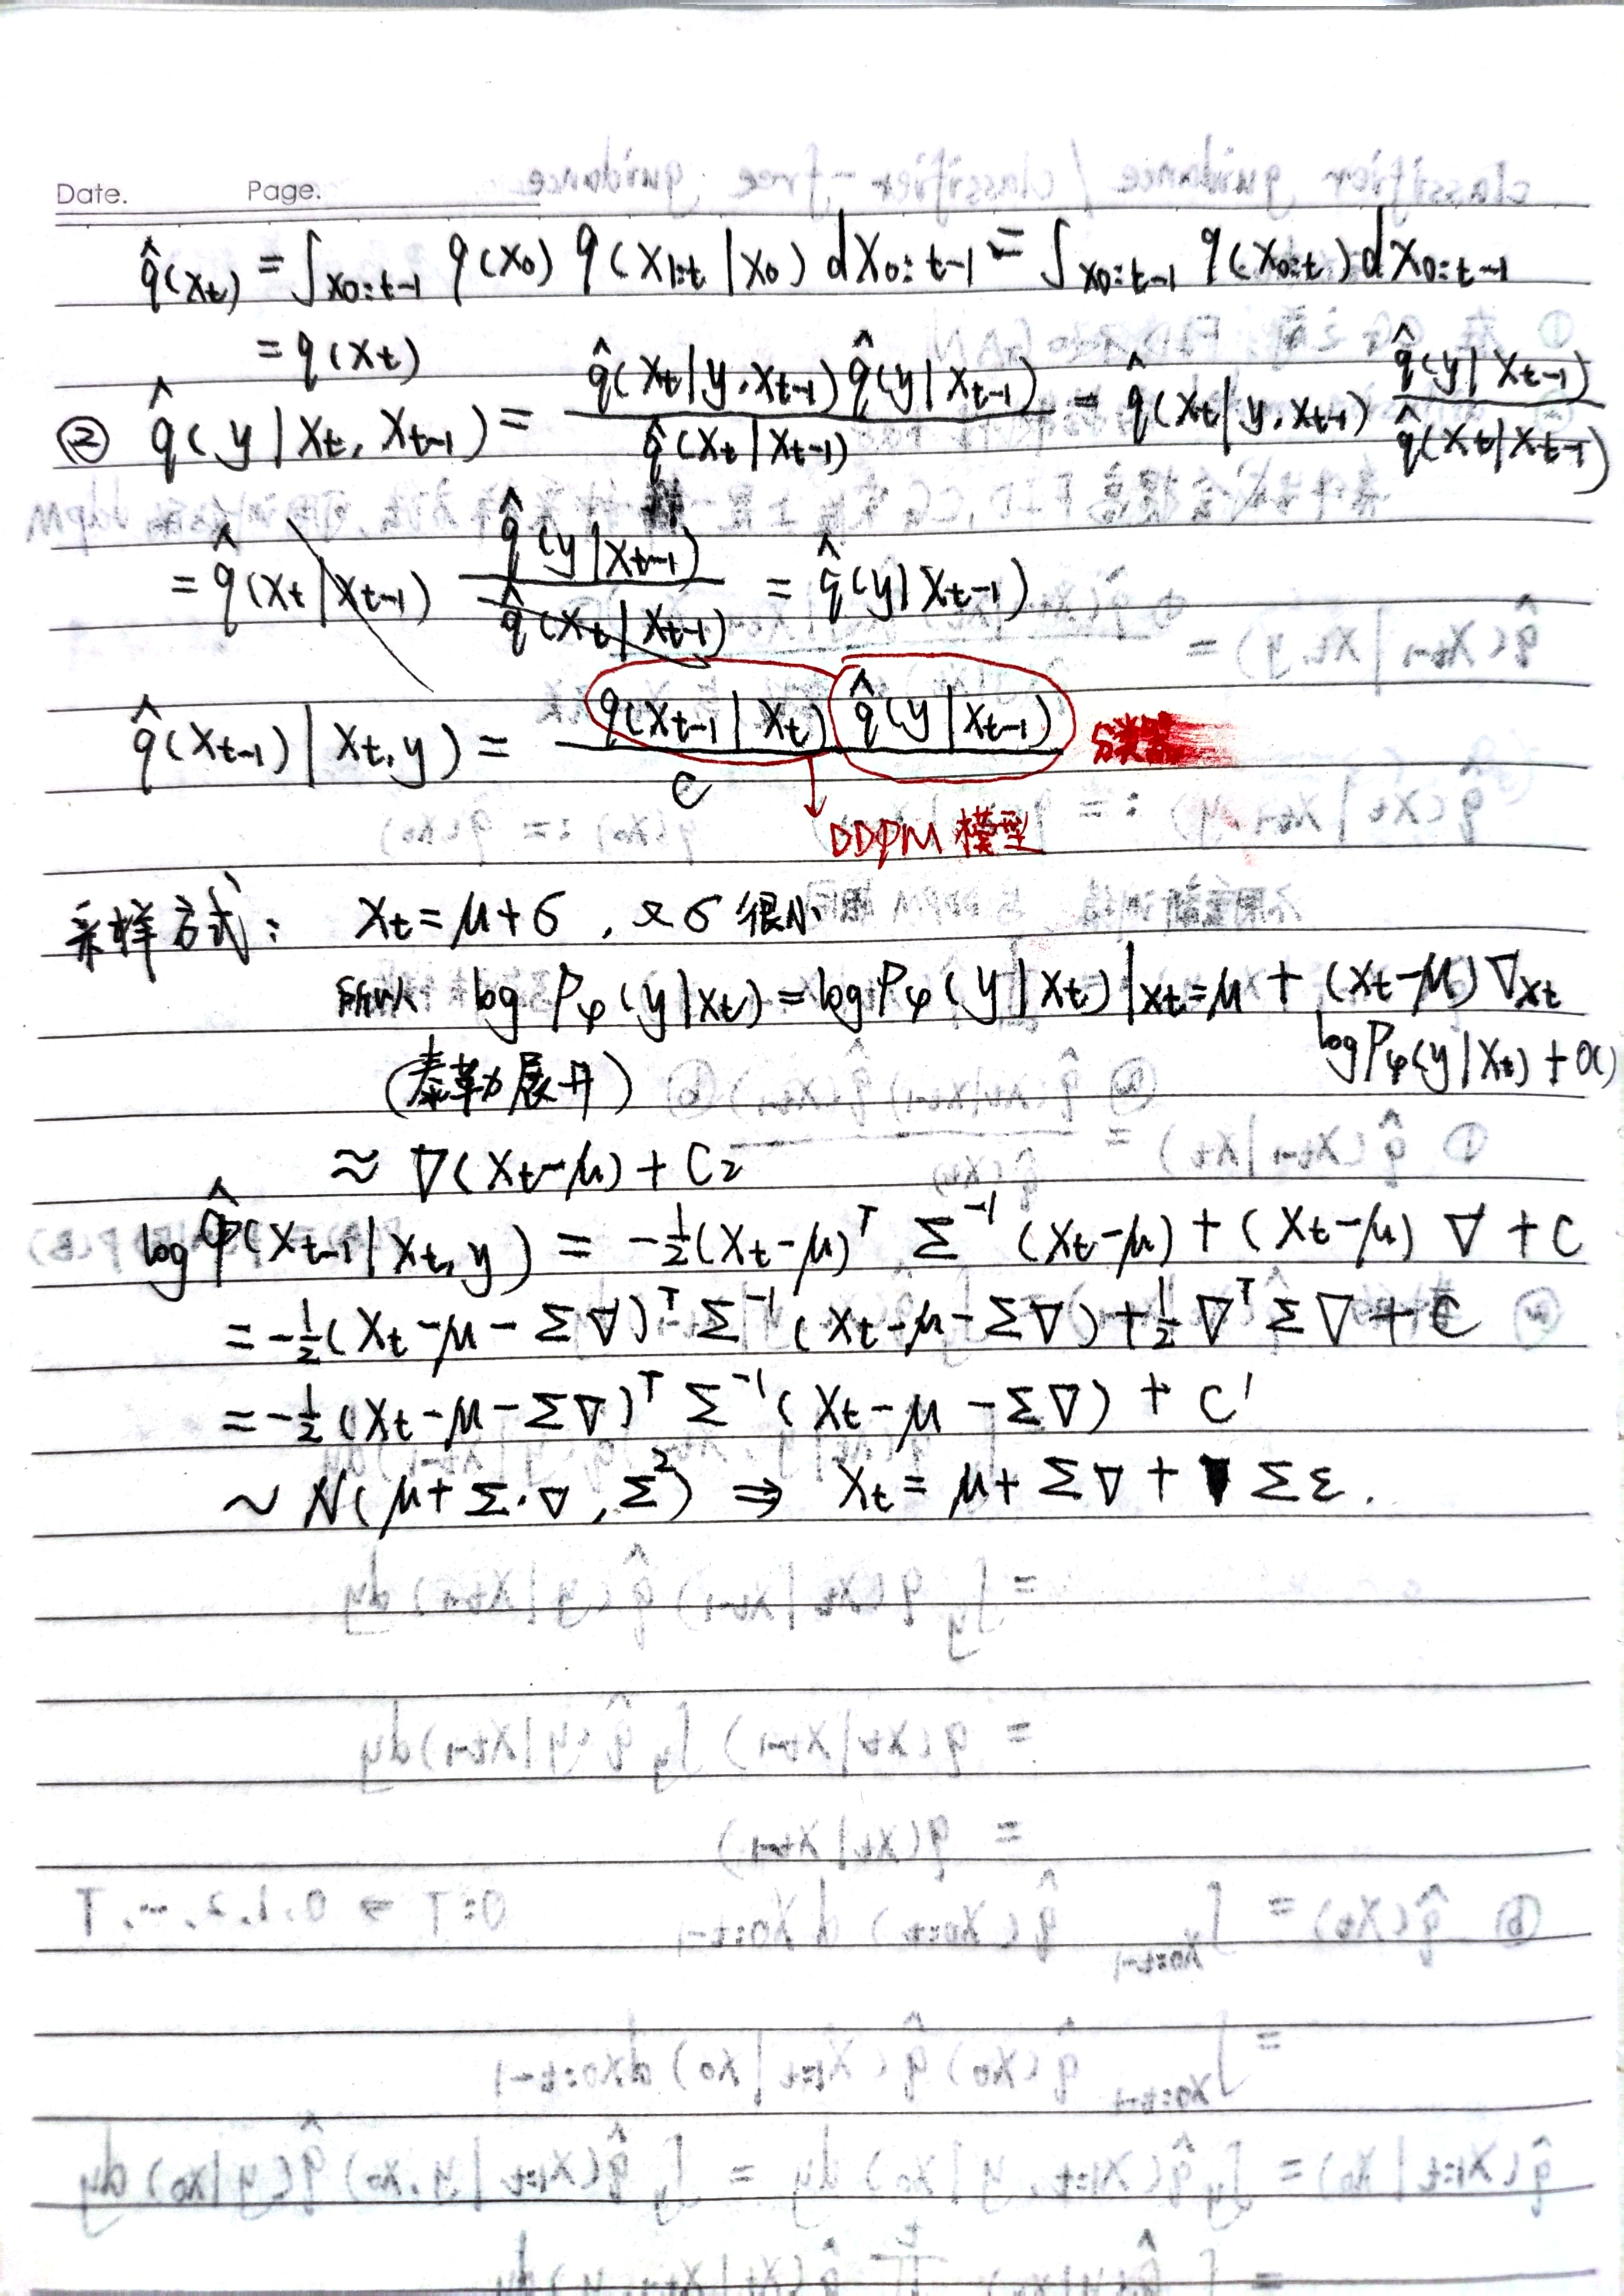 Date. Page.
q̂(x_t) = ∫_{x_{0:t-1}} q(x_0) q(x_{1:t}|x_0) dx_{0:t-1} = ∫_{x_{0:t-1}} q(x_{0:t}) dx_{0:t-1}
= q(x_t)
② q̂(y|x_t, x_{t-1}) = \frac{q̂(x_t|y, x_{t-1}) q̂(y|x_{t-1})}{q̂(x_t|x_{t-1})} = q̂(x_t|y, x_{t-1}) \frac{q̂(y|x_{t-1})}{q̂(x_t|x_{t-1})}
= q̂(x_t|x_{t-1}) \frac{q̂(y|x_{t-1})}{q̂(x_t|x_{t-1})} = q̂(y|x_{t-1})
q̂(x_{t-1})|x_t, y) = \frac{q(x_{t-1}|x_t) q̂(y|x_{t-1})}{C} 分类器
DDPM 模型
采样方式: x_t = μ+σ , 又σ 很小
所以 log P_φ(y|x_t) = log P_φ(y|x_t)|_{x_t=μ} + (x_t-μ) ∇_{x_t}
log P_φ(y|x_t) + o()
(泰勒展开)
≈ ∇(x_t-μ) + C_2
log p̂(x_{t-1}|x_t, y) = -½(x_t-μ)^T Σ^{-1} (x_t-μ) + (x_t-μ) ∇ + C
= -½(x_t-μ-Σ∇)^T Σ^{-1} (x_t-μ-Σ∇) + ½ ∇^T Σ ∇ + C
= -½(x_t-μ-Σ∇)^T Σ^{-1} (x_t-μ-Σ∇) + C'
~ N(μ+Σ·∇, Σ²) ⇒ x_t = μ+Σ∇+ Σε.